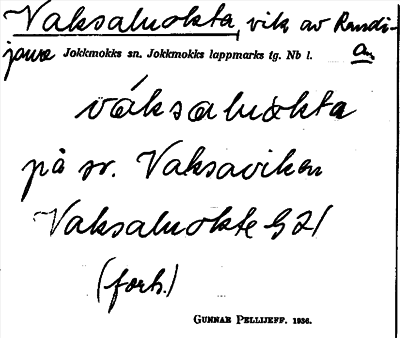 Vaksaluokta, vik av Randi-
jaure Jokkmokks sn. Jokkmokks lappmarks tg. Nb l. an
váksaluokta
på sv. Vaksaviken
Vaksaluokte G 21
(forh.)
GUNNAR PELLIJEFF. 1936.